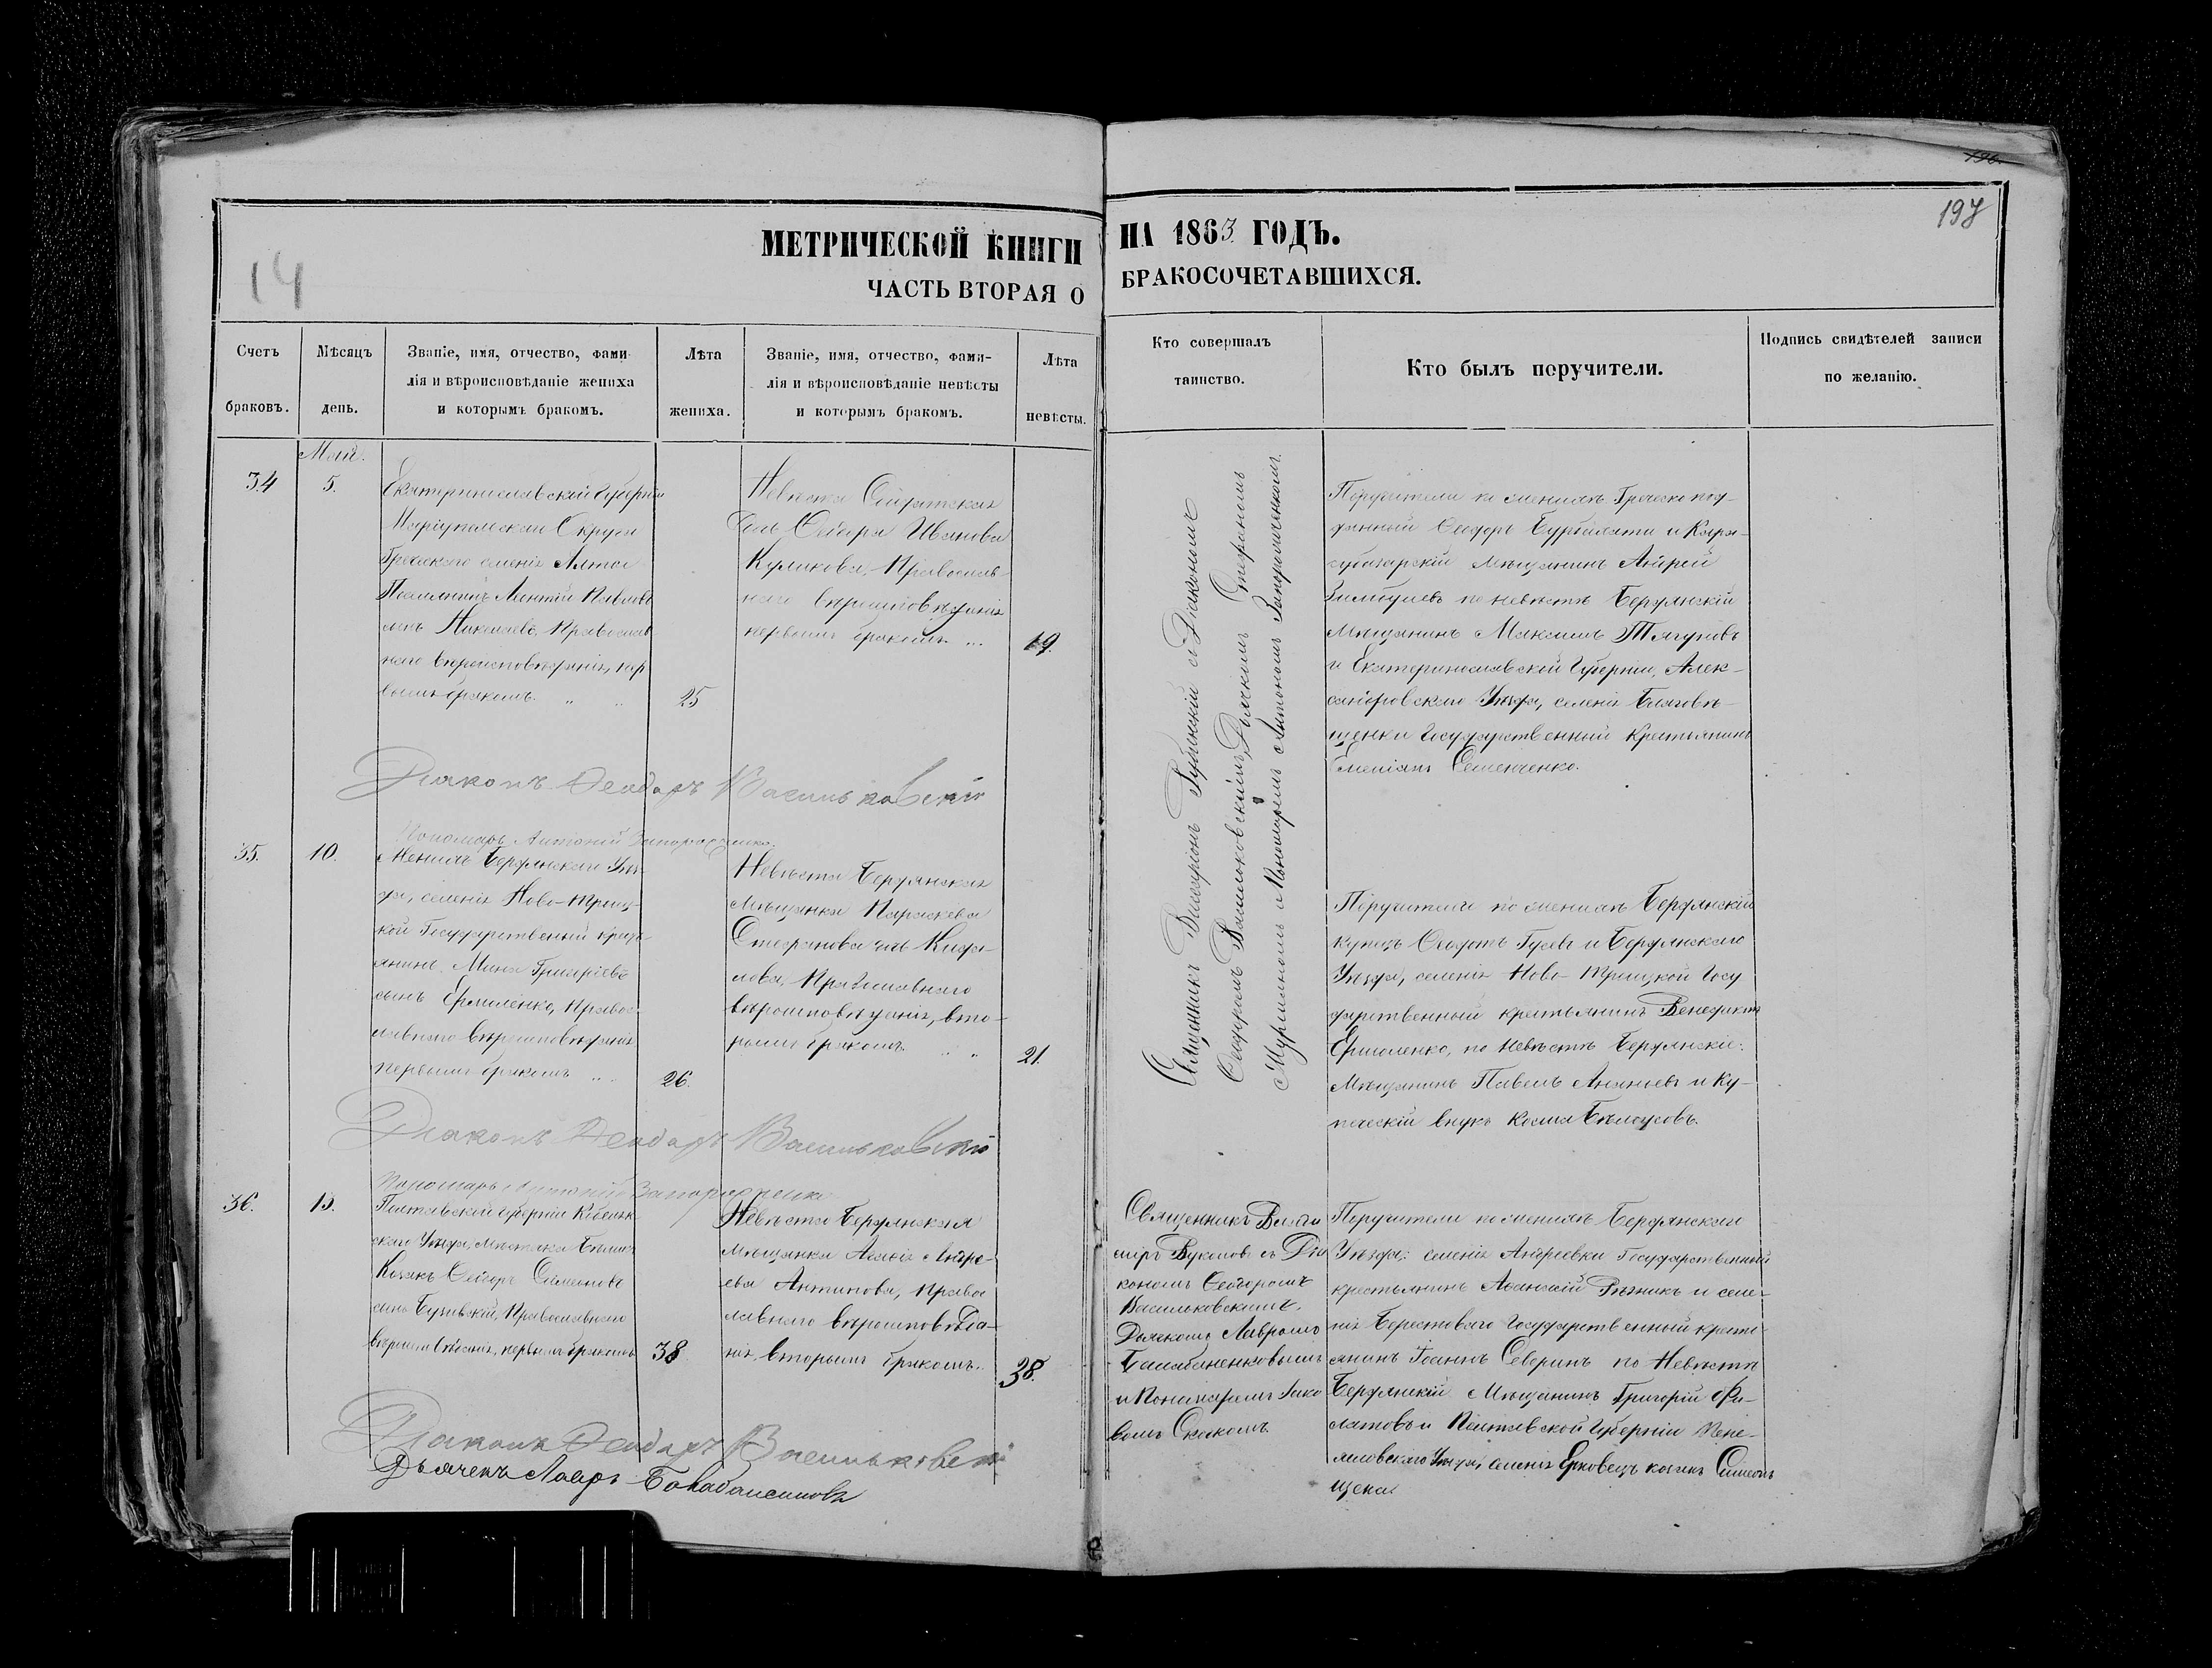 196.
197
14
МЕТРИЧЕСКОЙ КНИГИ НА 1863 ГОДЪ.
ЧАСТЬ ВТОРАЯ О БРАКОСОЧЕТАВШИХСЯ.
Счетъ браковъ.
Мѣсяцъ день.
Званіе, имя, отчество, фами-
лія и вѣроисповѣданіе жениха
и которымъ бракомъ.
Лѣта жениха.
Званіе, имя, отчество, фами-
лія и вѣроисповѣданіе невѣсты
и которымъ бракомъ.
Лѣта невѣсты.
Кто совершалъ
таинство.
Кто былъ поручители.
Подпись свидѣтелей записи
по желанію.
Май.
34
5.
Екатеринославской Губерніи
Маріупольскаго Округа
Греческаго селенія Ялта
Поселянинъ Павловъ
сынъ Православ
наго вѣроисповѣданія, пер
вымъ бракомъ.
25
Невѣста
Ѳеодора Иванова
Куликова, Православ
наго вѣроисповѣданія
первымъ бракомъ ...
19.
Священникъ съ Діакономъ
Ѳеодоромъ Васильковскимъ, Дьячкомъ Стефаномъ
и Пономаремъ Антономъ Запорожченкомъ.
Поручители по женихѣ Греческо под-
данный Ѳеодоръ и Кара-
субазарскій Мѣщанинъ Андрей
по невѣстѣ Бердянскій
Мѣщанинъ Максимъ Тягуновъ
и Екатеринославской Губерніи, Алек-
сандровскаго Уѣзда, селенія Благовѣ-
щенки Государственный крестьянинъ
Семенченко.
Діаконъ Ѳеодоръ Васильковскій
Пономарь Антоній Запорожченко.
35.
10.
Женихъ Бердянскаго Уѣз-
да, селенія Ново-Троиц-
кой Государственный крест
янинъ Мина Григоріевъ
сынъ Ермиленко, Правос-
лавнаго вѣроисповѣданія
первымъ бракомъ ...
26.
Невѣста Бердянская
Мѣщанка Параскева
Стефанова
лова, Православнаго
вѣроисповѣданія, вто-
рымъ бракомъ.
21.
Поручители по женихѣ Бердянскій
купецъ Ѳедотъ Гусевъ и Бердянскаго
Уѣзда, селенія Ново-Троицкой Госу
дарственный крестьянинъ Венедиктъ
Ермоленко, по Невѣстѣ Бердянскіе:
Мѣщанинъ Павелъ Ананьевъ и Ку-
печескій внукъ Косма Бѣлоусовъ.
Діаконъ Ѳеодоръ Васильковскій
Пономарь Антоній Запорожченко
36.
15.
Полтавской Губерніи Кобеляк
скаго Уѣзда, мѣстечка
Козакъ Ѳеодоръ Симеоновъ
сынъ Православнаго
вѣроисповѣданія, первымъ бракомъ
38
Невѣста Бердянская
Мѣщанка Андре-
ева Антипова, Правос
лавнаго вѣроисповѣда-
нія, вторымъ бракомъ.
38.
Священникъ Влади
миръ Буковъ съ Діа
кономъ Ѳеодоромъ
Васильковскимъ.
Дьячкомъ Лавромъ
и Пономаремъ Іако
вомъ
Поручители по женихѣ Бердянскаго
Уѣзда: селенія Андреевки Государственный
крестьянинъ Аѳанасій Рѣзникъ и селе-
нія Берестоваго Государственный кресть-
янинъ Іоаннъ Северинъ по Невѣстѣ
Бердянскій Мѣщанинъ Григорій Фи-
латовъ и Полтавской Губерніи Пере-
яславскаго Уѣзда, селенія Ерковецъ козакъ Симеонъ
Діаконъ Ѳеодоръ Васильковскій
Дьячекъ Лавръ